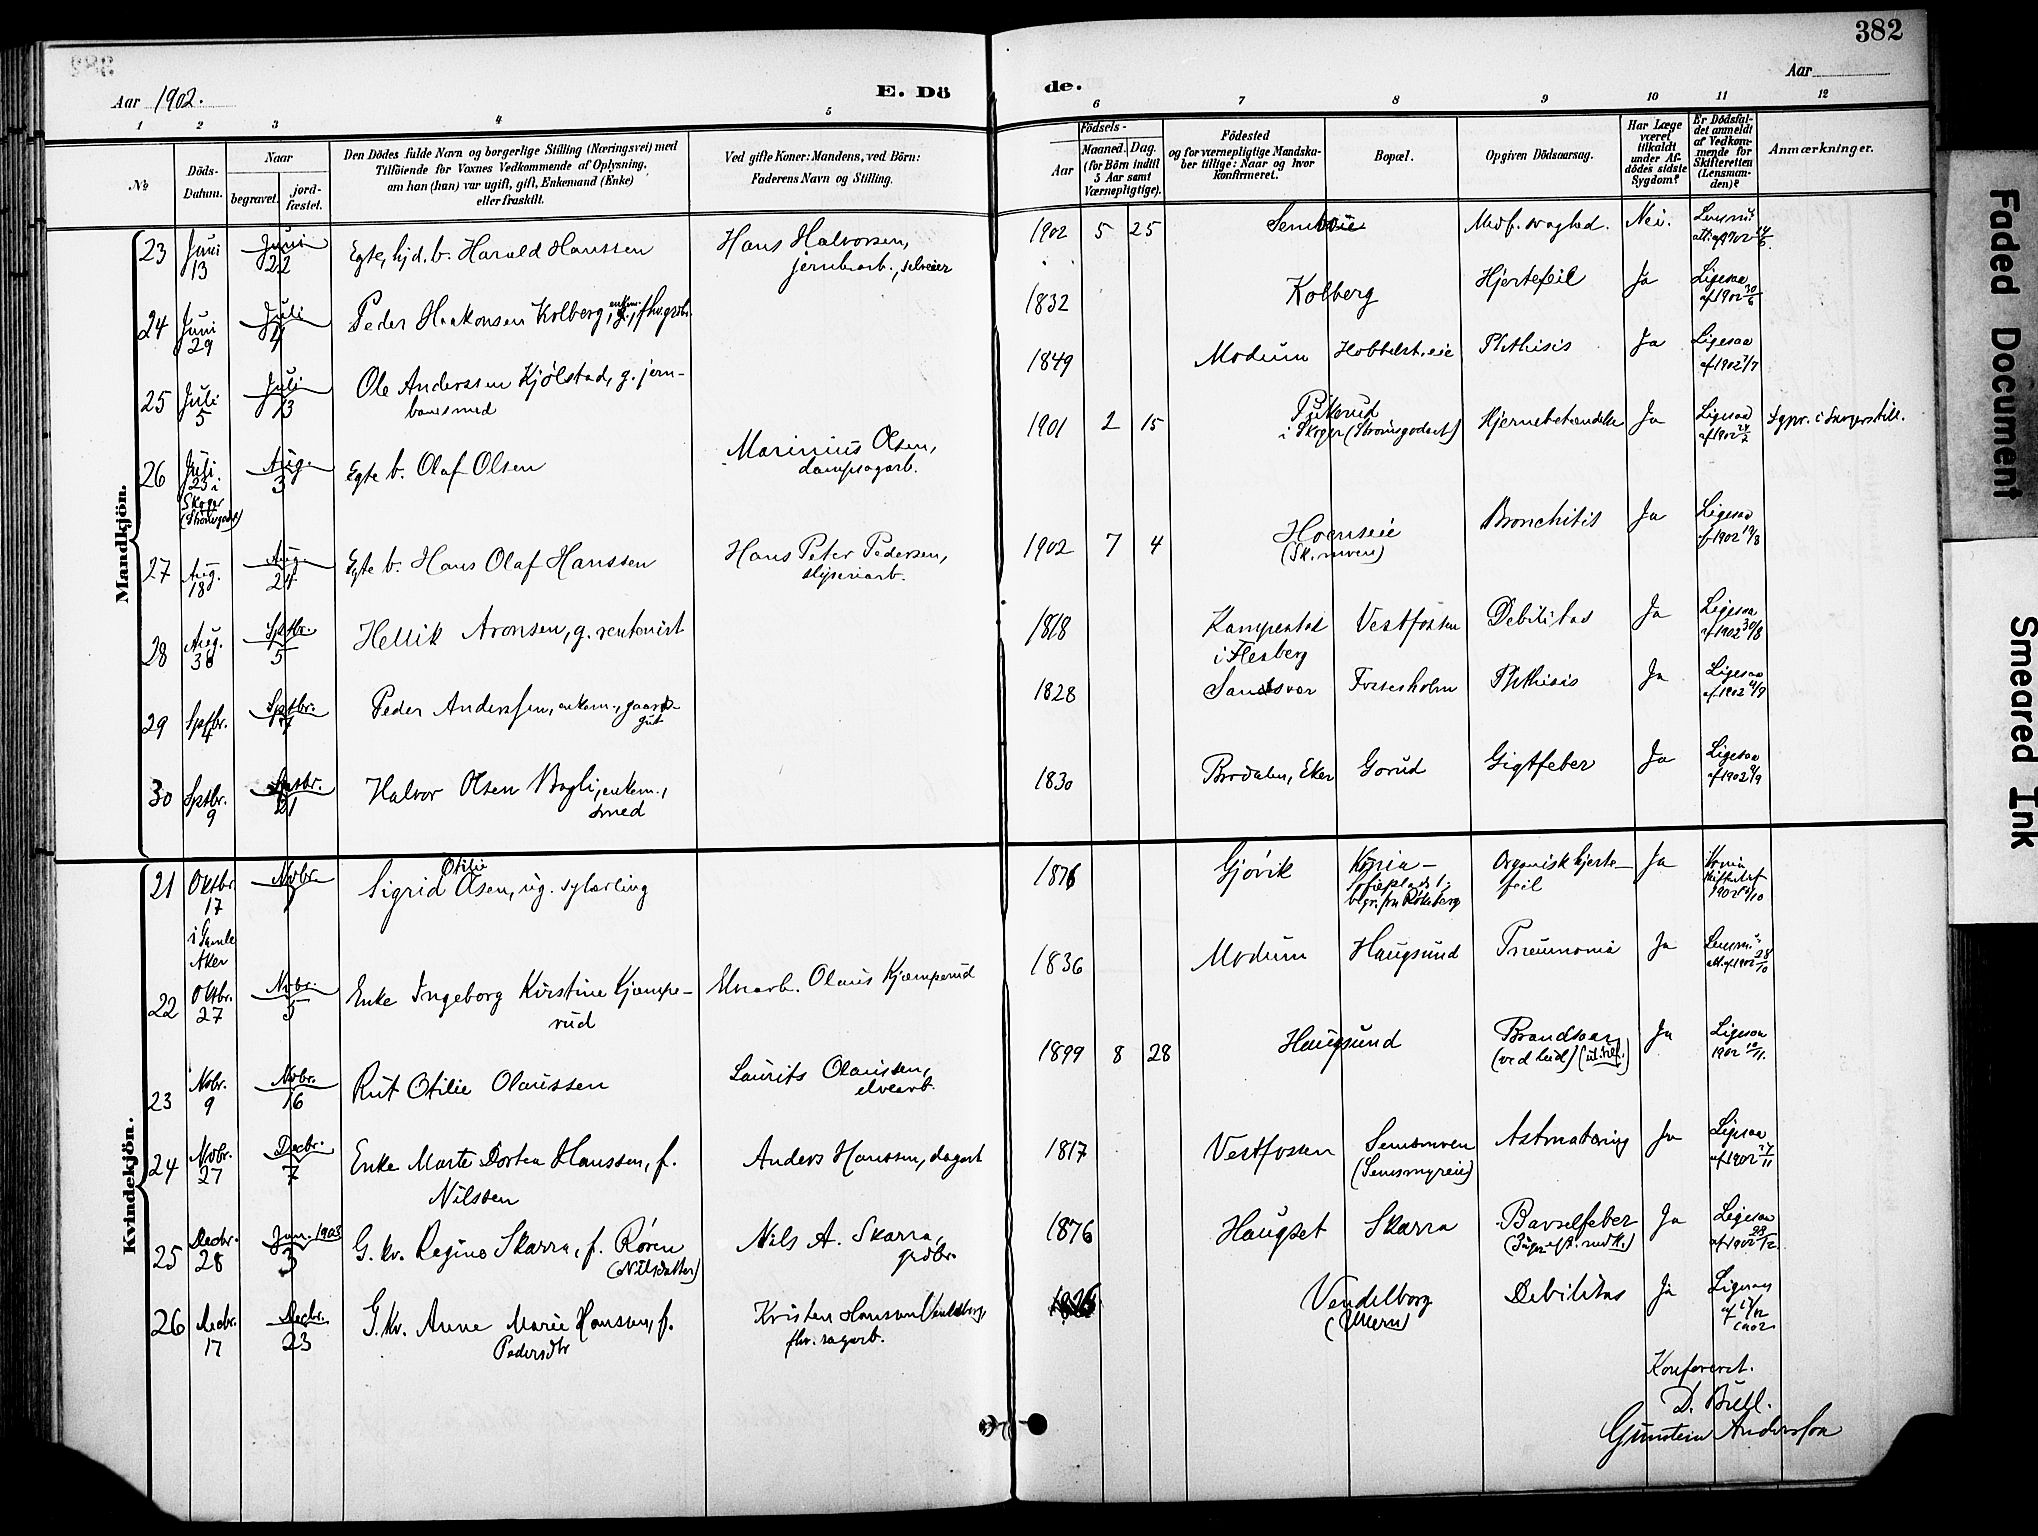 382
Aar 1902.
E. Dö
de.
Aar
1 2 3 4 5 6 7 8 9 10 11 12
№
Döds-
Datum.
Naar
begravet.
jord-
fæstet.
Den Dödes fulde Navn og borgerlige Stilling (Næringsvei) med
Tilföiende for Voxnes Vedkommende af Oplysning,
om han (hun) var ugift, gift, Enkemand (Enke)
eller fraskilt.
Ved gifte Koner: Mandens, ved Börn:
Faderens Navn og Stilling.
Födsels-
Aar
Maaned. Dag.
(for Börn indtil
5 Aar samt
Værnepligtige).
Födested
og for værnepligtige Mandska-
ber tillige: Naar og hvor
konfirmeret.
Bopæl.
Opgiven Dödsaarsag.
Har Læge
været
tilkaldt
under Af-
dödes sidste
Sygdom?
Er Dödsfal-
det anmeldt
af Vedkom-
mende for
Skifteretten
(Lensman-
den)?
Anmærkninger.
Mandkjön.
23 Juni 13 Juni 22 Egte, hjd. b. Harald Hanssen Hans Halvorsen,
jernbarb., selveier
1902 5 25 Semseie Medf. svaghed. Nei.
24 Juni 29 Juli 4 Peder Haakonsen Kolberg, enkem., fhv. grdbr.
1832 Kolberg Hjertefeil Ja Ligesaa af 1902 30/6
25 Juli 5 Juli 13 Ole Anderssen Kjølstad, g. jern-
banesmed
1849 Modum Hobbelst. eie Phthisis Ja Ligesaa af 1902 7/7
26 Juli 25 i Skoger (Strømsgodset) Aug. 3 Egte b. Olaf Olsen Marinius Olsen,
dampsagarb.
1901 2 15 Pukerud
i Skoger (Strømsgodset) Hjernebetændelse Ja Ligesaa
27 Aug. 18 Aug. 24 Egte b. Hans Olaf Hanssen Hans Peter Pedersen,
sliperiarb.
1902 7 4 Hoenseie
(Sk. moen) Bronchitis Ja Ligesaa af 1902 19/8
28 Aug. 30 Septbr. 5 Hellik Aronsen, g. rentenist
1818 Kampestad
i Flesberg Vestfossen Debilitas Ja Ligesaa af 1902 30/8
29 Septbr. 4 Septbr. 7 Peder Anderssen, enkem., gaards-
gut
1828 Sandsvær Fossesholm Phthisis Ja Ligesaa af 1902 4/9
30 Sptbr. 9 Sptbr. 21 Halvor Olsen Bøgli, enkem.,
smed
1830 Bordalen, Eker Gorud Gigtfeber Ja Ligesaa af 1902 9/9
Kvindekjön.
21 Oktbr. 17 i Gamle Aker Novbr. 1 Sigrid Otilie Olsen, ug. sylærling
1876 Gjøvik Kristiania -
Sofieplads 1,
Organisk hjerte-
feil Ja
22 Oktbr. 27 Novbr. 5 Enke Ingeborg Kirstine Kjæmpe-
rud Elvearb. Olaus Kjæmperud
1836 Modum Haugsund Pneumonia Ja
23 Novbr. 9 Novbr. 16 Rut Otilie Olaussen Laurits Olaussen,
elvearb.
1899 8 28 Haugsund Brandsaar
(ved uheld) Ja Ligesaa 1902 10/11.
24 Novbr. 27 Decbr. 7 Enke Marte Dortea Hanssen, f.
Nilssen Anders Hanssen, dagarb
1817 Vestfossen Semsmoen
(Semsmyreie) Astmatæring Ja Ligesaa af 1902 27/11
25 Decbr. 28 Jan. 1903 3 G. kv. Regine Skarra, f. Røren
(Nilsdatter) Nils A. Skarra,
grdbr.
1876 Haugset Skarra Barselfeber Ja Ligesaa af 1902 29/12
26 Decbr. 17 Decbr. 23 G. kv. Anne Marie Hansen, f.
Pedersdtr Kristen Hansen Vendelborg,
fhv. sagarb.
1826 Vendelborg
(Ulleren) Debilitas Ja Ligesaa af 17/12 1902
Konfereret.
D. Bull.
Gunstein Anderssen
Faded Document
Smeared Ink